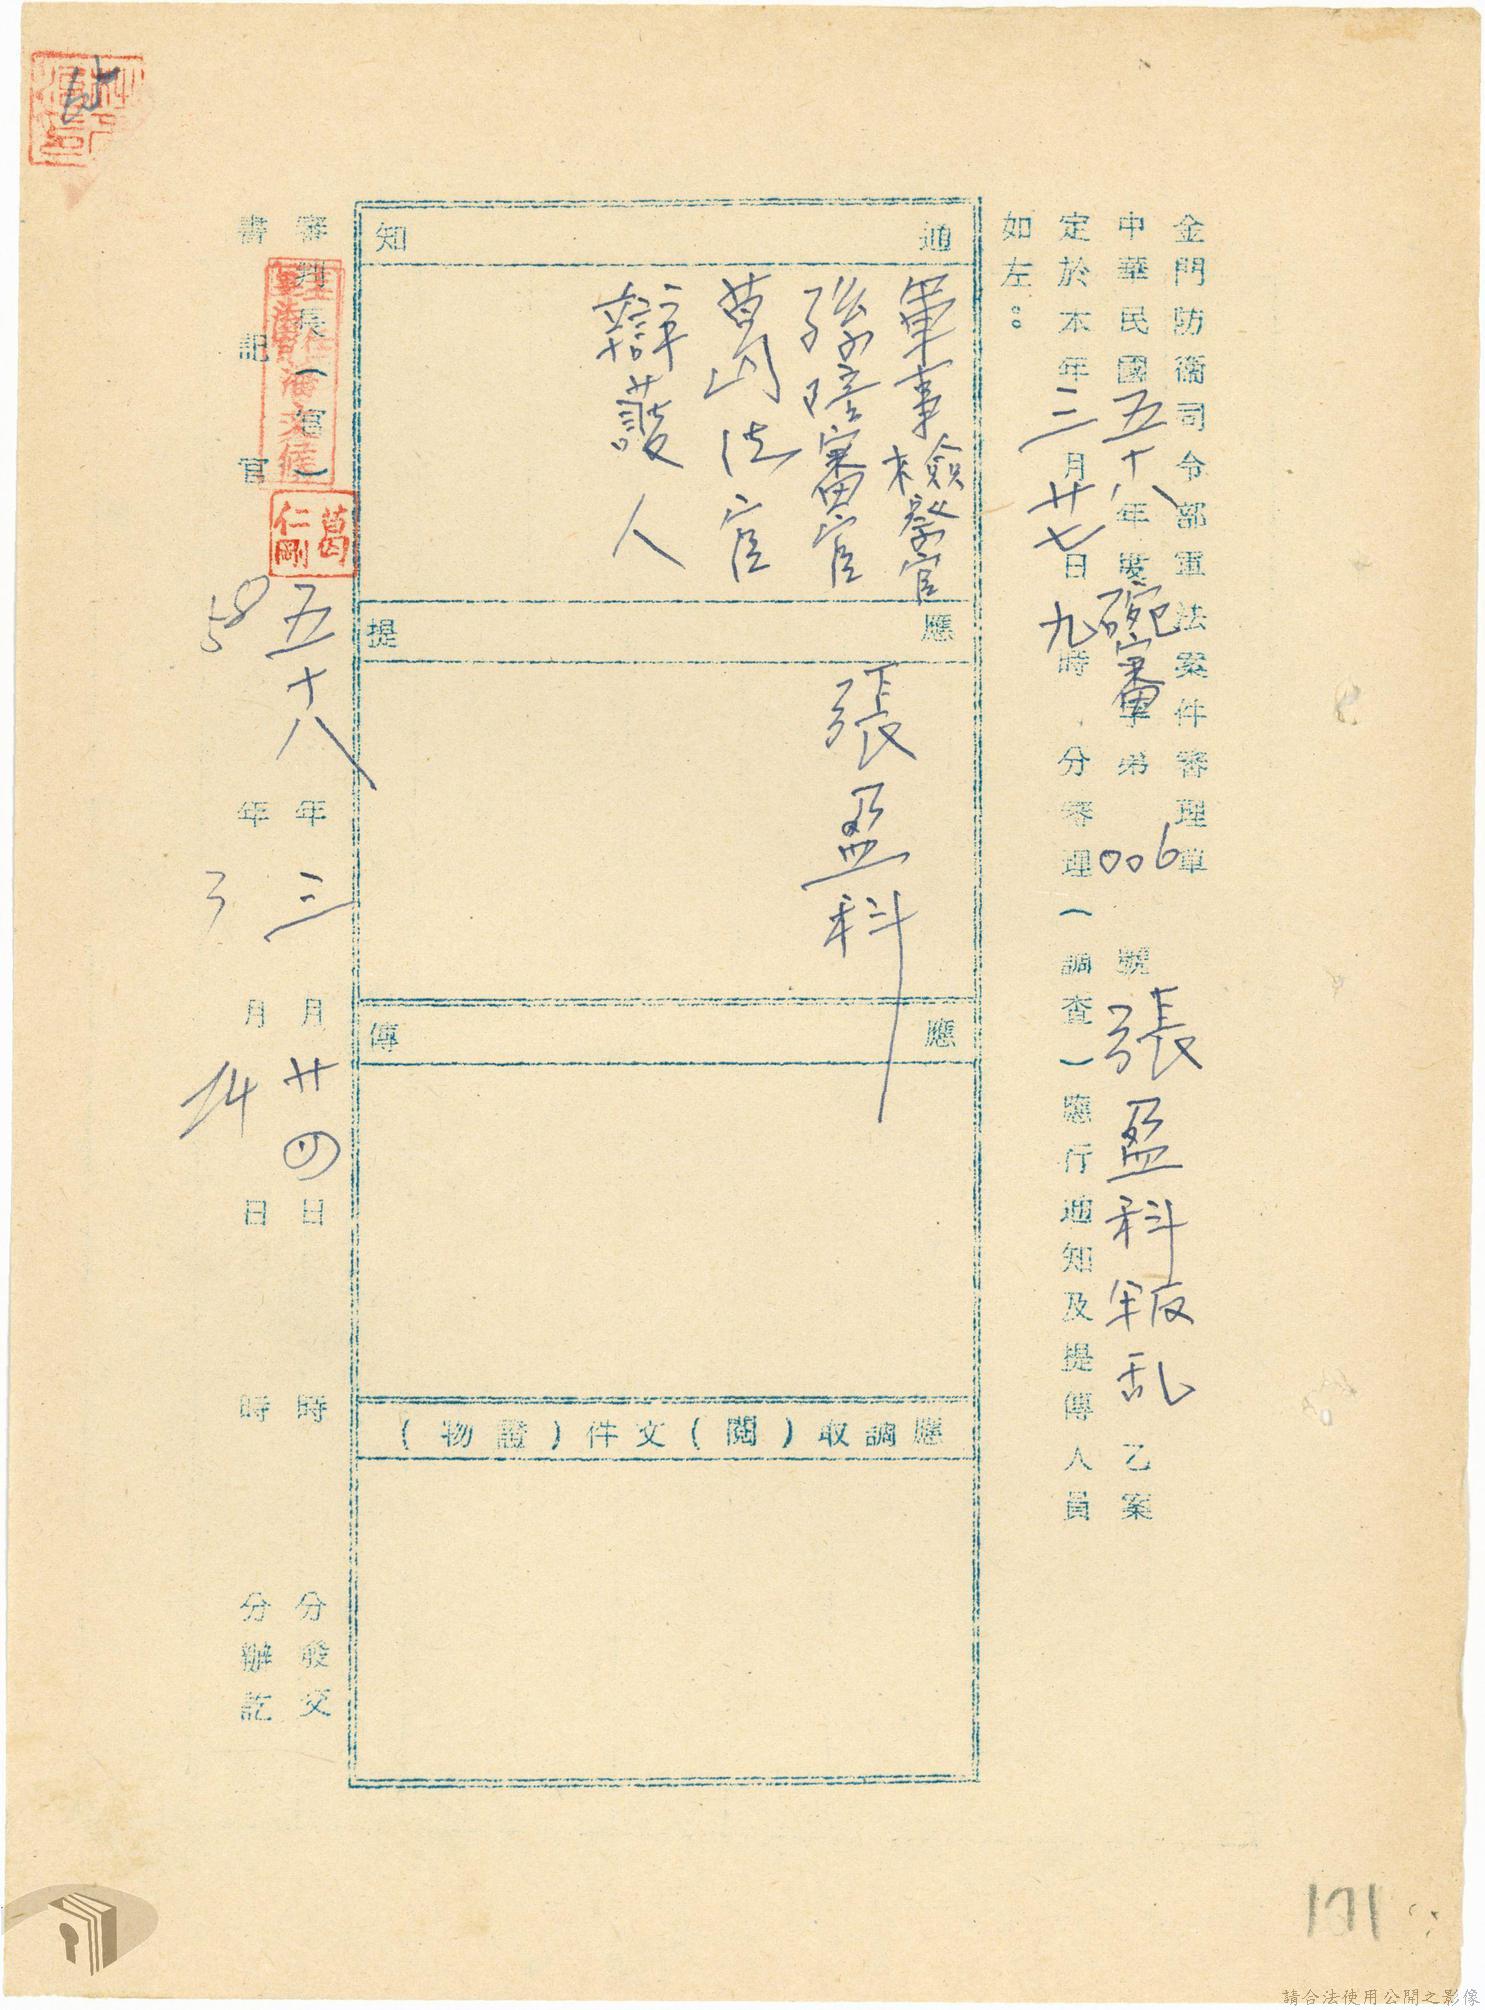 金門防衛司令部軍法案件審理單
中華民國五十八年度碗審字第006號張盈科叛乱乙案
定於本年三月廿七日九時 分審理(調查)應行通知及提傳人員
如左:
通知
軍事檢察官
孫陸審官
葛法官
辯護人
應提
張盈科
應傳
應調取(閱)文件(證物)
審判長(官) 五十八年三月廿四日 時 分發交
潘文候
葛仁剛
書記官 58年3月24日 時 分辦訖
171
請合法使用公開之影像